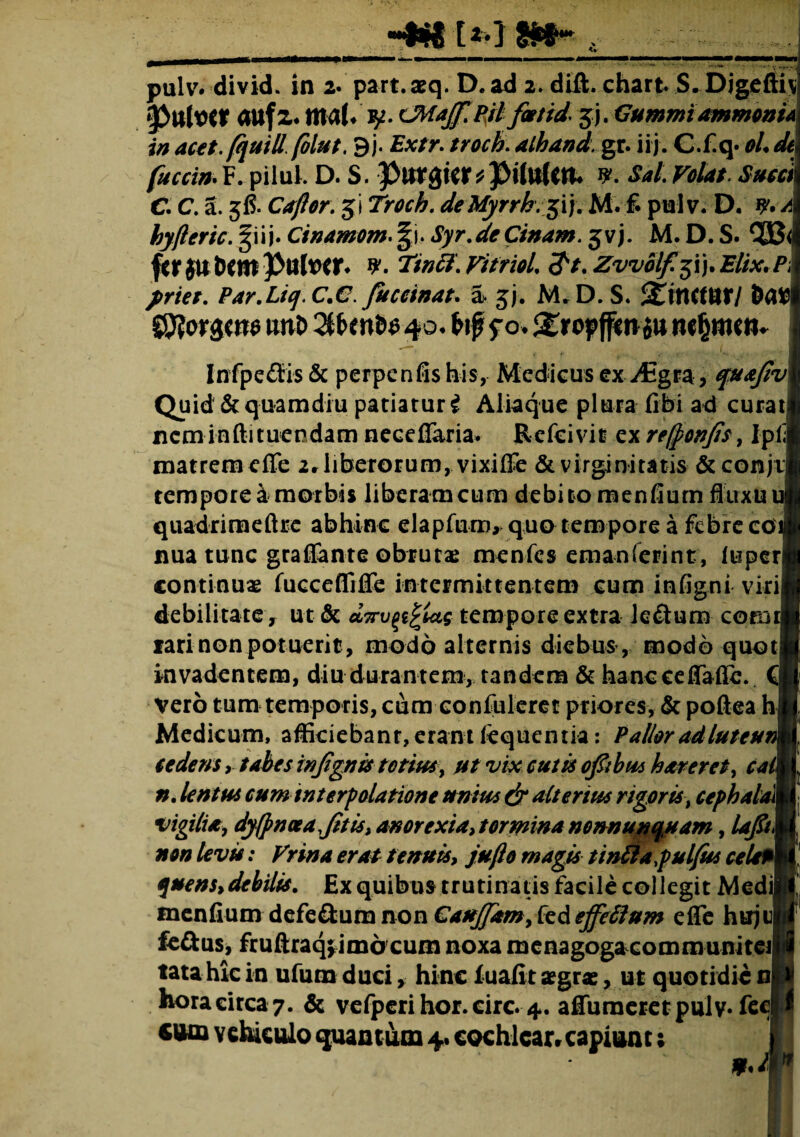 [2.]
pulv. divid. in 2. part. æq. D. ad 2. dist. chart. S. Digestiv
Pulver auf 2. mal. ℞. Mass. Pil fœtid. ʒj. Gummi ammonia
in acet. squill. solut. ℈j. Extr. troch. alhand. gr. iij. C.s.q. ol. de
succin. F. pilul. D. S. Purgier-Pilulen. ℞. Sal. Volat. Succi
C. C. ā. ʒß. Castor. ʒi Troch. de Myrrh. ʒij. M. f. pulv. D. ℞.
hysteric. ℥iij. Cinamom. ℥j. Syr. de Cinam. ʒvj. M. D. S.
fer zu dem Pulver. ℞. Tinct. Vitriol. ☿t. Zvvölf. ʒij. Elix. P
priet. Par. Liq. C.C. succinat. ā ʒj. M. D. S. Tinctur/ dav
Morgens und Abends 40. biß 50. Tropffen zu nehmen.
Inspectis & perpensis his, Medicus ex Ægra, quæsiv
Quid & quamdiu patiatur? Aliaque plura sibi ad curat
nem instituendam necessaria. Rescivit ex responsis, Ips
matrem esse 2. liberorum, vixisse & virginitatis & conju
tempore à morbis liberam cum debito mensium fluxu u
quadrimestre abhinc elapsum, quo tempore à febre con
nua tunc grassante obrutæ menses emanserint, super
continuæ successisse intermittentem cum insigni viri
debilitate, ut & ἀπυρεξίας tempore extra lectum com
rari non potuerit, modò alternis diebus, modò quot
invadentem, diu durantem, tandem & hanc cessasse.
verò tum temporis, cùm consuleret priores, & postea h
Medicum, afficiebant, erant sequentia: Pallor ad luteum
cedens, tabes insignis totius, ut vix cutis ossibus hæreret, cal
n. lentus cum interpolatione unius & alterius rigoris, cephalal
vigiliæ, dyspnœa, sitis, anorexia, tormina nonnunquam, lassi
non levis: Urina erat tenuis, justo magis tincta, pulsus cele
quens, debilis. Ex quibus trutinatis facilè collegit Medi
mensium defectum non Caussam, sed effectum esse huju
fectus, frustraq; imò cum noxa menagoga communite
tata hîc in usum duci, hinc suasit ægræ, ut quotidiè n
hora circa 7. & vesperi hor. circ. 4. assumeret pulv. seq
cum vehiculo quantùm 4. cochlear. capiunt;
℞.